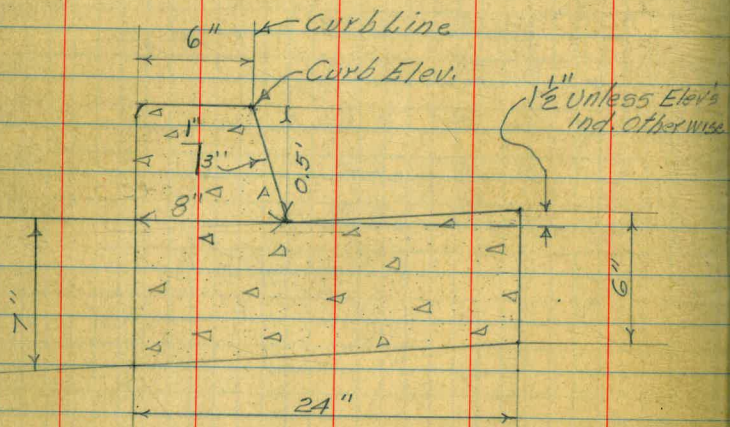 6"
Curb Line
Curb Elev.
1½" Unless Elev's
Ind. Otherwise
1"
3"
0.5'
8"
7"
6"
24"